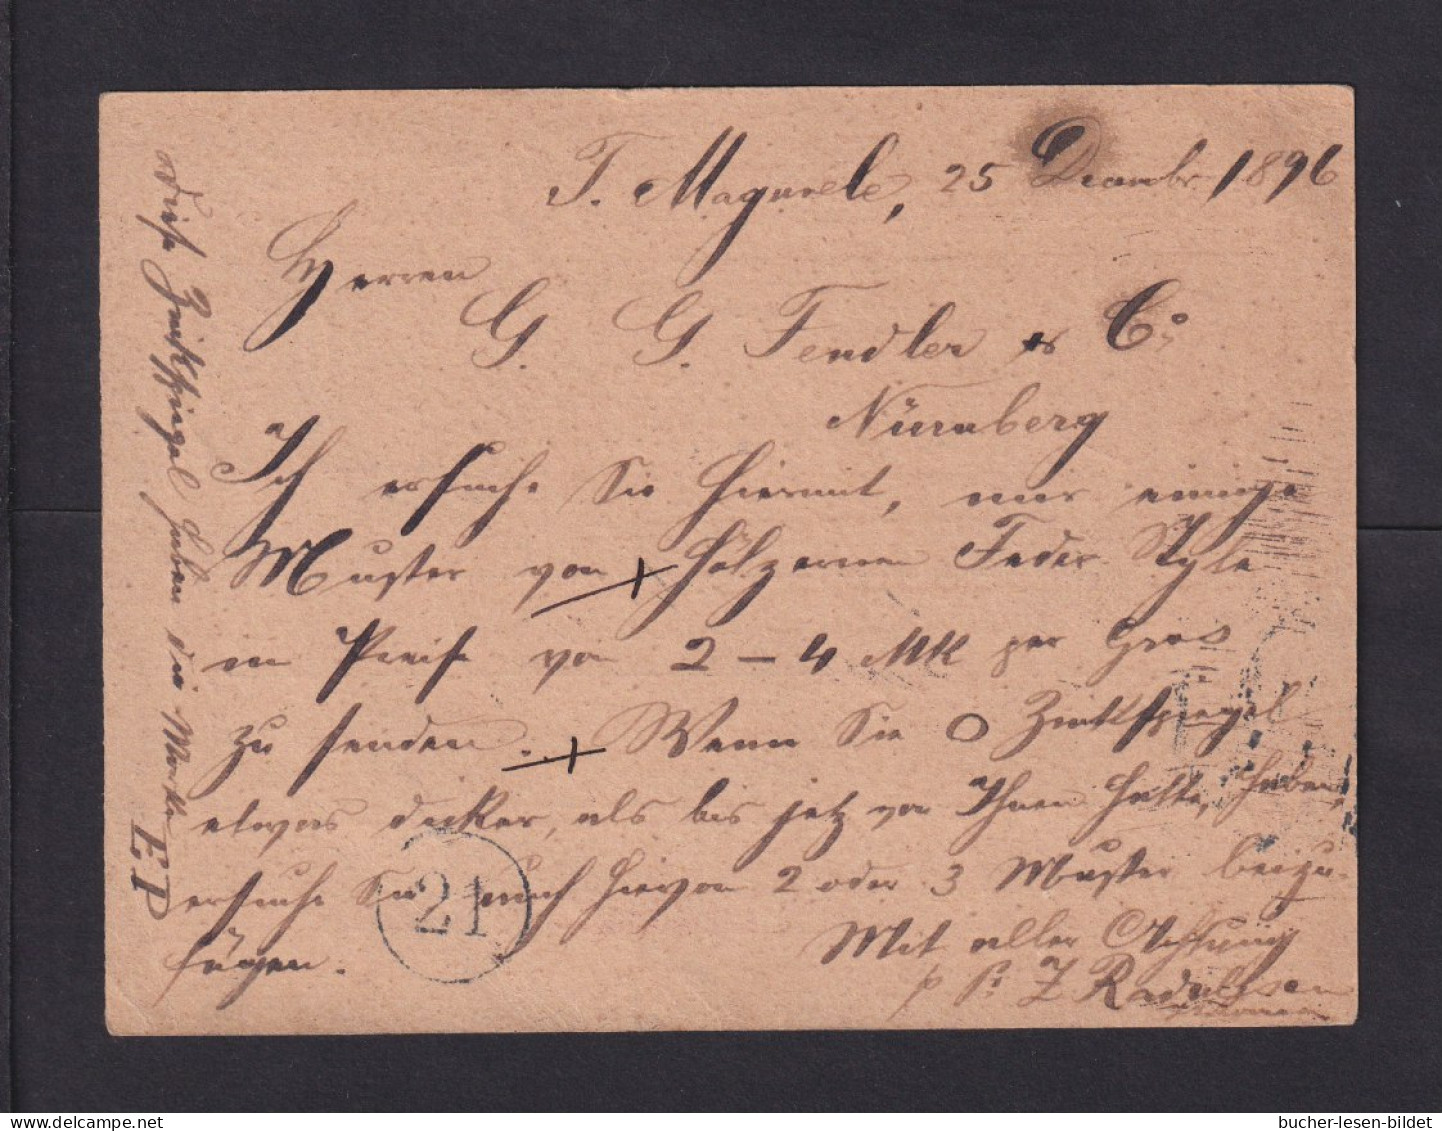 T. Magurele, 25 Decembr 1896
Herren
G. G. Fendler & Co;
Nürnberg
Ich ersuche Sie hiermit, mir einige
Muster von + hölzernen Feder Style
im Preise von 2 – 4 MK per Gros
zu senden. + Wenn Sie O Zinkspiegel
etwas dicker, als bis jetz von Ihnen hatte, haben,
ersuche Sie mich hiervon 2 oder 3 Muster beizu-
fügen.
Mit aller Achtung
p. p. Z
Diese Zinkspiegel haben die Marke EP
21
bucher-lesen-bildet